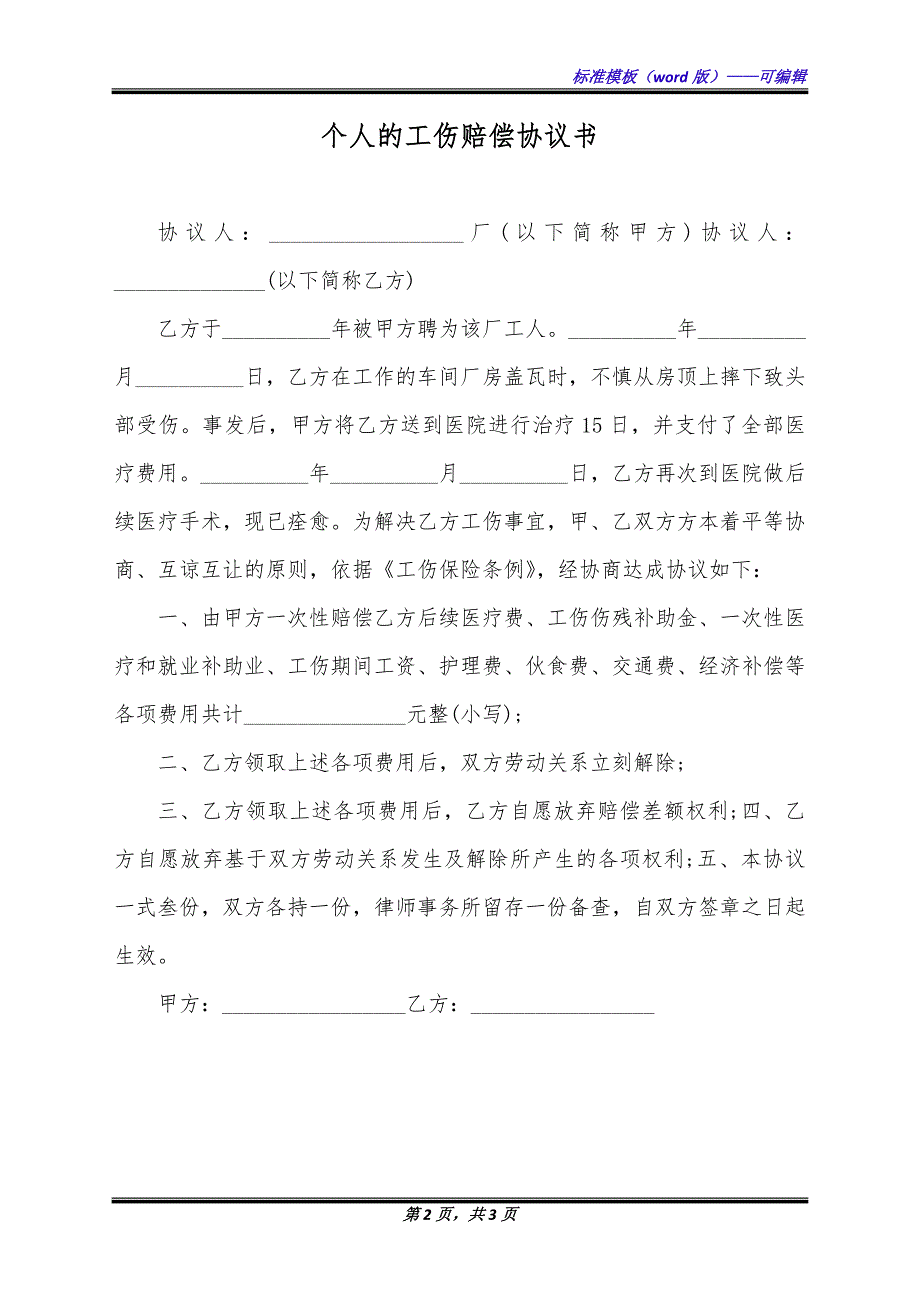 标准模板（word 版）——可编辑
个人的工伤赔偿协议书
协议人：__________________厂(以下简称甲方)协议人：
______________(以下简称乙方)
乙方于__________年被甲方聘为该厂工人。__________年__________
月__________日，乙方在工作的车间厂房盖瓦时，不慎从房顶上摔下致头
部受伤。事发后，甲方将乙方送到医院进行治疗 15 日，并支付了全部医
疗费用。__________年__________月__________日，乙方再次到医院做后
续医疗手术，现已痊愈。为解决乙方工伤事宜，甲、乙双方方本着平等协
商、互谅互让的原则，依据《工伤保险条例》，经协商达成协议如下：
一、由甲方一次性赔偿乙方后续医疗费、工伤伤残补助金、一次性医
疗和就业补助业、工伤期间工资、护理费、伙食费、交通费、经济补偿等
各项费用共计_______________元整(小写);
二、乙方领取上述各项费用后，双方劳动关系立刻解除;
三、乙方领取上述各项费用后，乙方自愿放弃赔偿差额权利;四、乙
方自愿放弃基于双方劳动关系发生及解除所产生的各项权利;五、本协议
一式叁份，双方各持一份，律师事务所留存一份备查，自双方签章之日起
生效。
甲方：_________________乙方：_________________
第 2 页，共 3 页